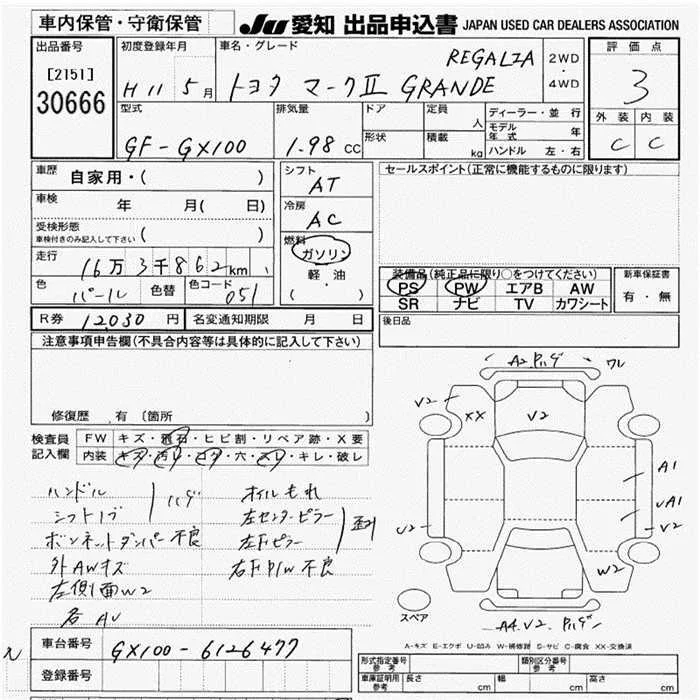 車内保管・守衛保管
JU 愛知 出品申込書 JAPAN USED CAR DEALERS ASSOCIATION
出品番号
[2151]
30666
初度登録年月
H11 5月
車名・グレード
REGALIA
トヨタ マークII GRANDE
2WD
・
4WD
評価点
3
外装 内装
C C
型式
GF-GX100
排気量
1.98 cc
ドア
形状
定員 人
積載 kg
ディーラー・並 行
モデル年式 年
ハンドル 左・右
車歴
自家用・( )
車検 年 月( 日)
受検形態
車検付きのみ記入して下さい ( )
走行
16万3千862km
色
パール 色替
色コード
051
シフト
AT
冷房
AC
燃料
ガソリン
軽・油
( )
セールスポイント(正常に機能するものに限ります)
装備品(純正品に限り○をつけてください)
PS PW エアB AW
SR ナビ TV カワシート
新車保証書
有・無
R券 12030円 名変通知期限 月 日
後日品
注意事項申告欄(不具合内容等は具体的に記入して下さい)
修復歴 有〔箇所
検査員
記入欄
FW キズ・飛石・ヒビ割・リペア跡・X要
内装 キズ・汚レ・コゲ・穴・スレ・キレ・破レ
ハンドル
シフトノブ
ハゲ
ボンネットダンパー不良
外AWキズ
左側面W2
各AU
オイルもれ
左センターピラー
左Fピラー
歪
右F P/W不良
A2 Pハゲ ワレ
V2
XX
V2
A1
UA1
V2
U2
W2
A4.V2 Pハゲ
スペア
A-キズ E-エクボ U-凹み W-補修跡 S-サビ C-腐食 XX-交換済
車台番号 GX100-6126477
登録番号
型式指定番号
参考
類別区分番号
参考
車庫証明用
参考
長さ cm
幅 cm
高さ cm